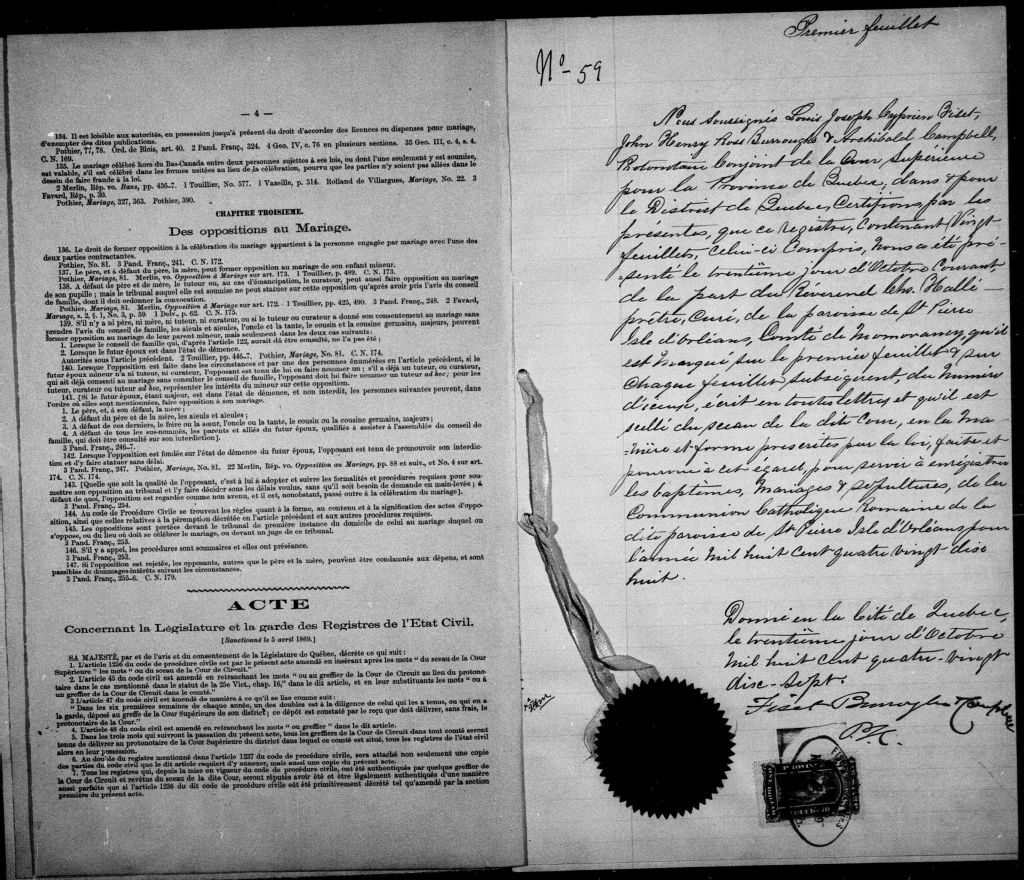 — 4 —
134. Il est loisible aux autorités, en possession jusqu'à présent du droit d'accorder des licences ou dispenses pour mariage,
d'exempter des dites publications.
Pothier, 77, 78. Ord. de Blois, art. 40. 2 Pand. Franç., 324. 4 Geo. IV, c. 76 en plusieurs sections. 35 Geo. III, c. 4, s. 4.
C. N. 169.
135. Le mariage célébré hors du Bas-Canada entre deux personnes sujettes à ses lois, ou dont l'une seulement y est soumise,
est valable, s'il est célébré dans les formes usitées au lieu de la célébration, pourvu que les parties n'y soient pas allées dans le
dessin de faire fraude à la loi.
2 Merlin, Rép. vo. Bans, pp. 436-7. 1 Touillier, No. 577. 1 Vazeille, p. 314. Rolland de Villargues, Mariage, No. 22. 3
Favard, Rép., p. 30.
Pothier, Mariage, 327, 363. Pothier, 390.
CHAPITRE TROISIEME.
Des oppositions au Mariage.
136. Le droit de former opposition à la célébration du mariage appartient à la personne engagée par mariage avec l'une des
deux parties contractantes.
Pothier, No. 81. 3 Pand. Franç., 241. C. N. 172.
137. Le père, et à défaut du père, la mère, peut former opposition au mariage de son enfant mineur.
Pothier, Mariage, 81. Merlin, vo. Opposition à Mariage sur art. 173. 1 Touillier, p. 489. C. N. 173.
138. A défaut de père et de mère, le tuteur ou, au cas d'émancipation, le curateur, peut aussi faire opposition au mariage
de son pupille; mais le tribunal auquel elle est soumise ne peut statuer sur cette opposition qu'après avoir pris l'avis du conseil
de famille, dont il doit ordonner la convocation.
Pothier, Mariage, 81. Merlin, Opposition à Mariage sur art. 172. 1 Touillier, pp. 425, 490. 3 Pand. Franç., 248. 2 Favard,
Mariage, s. 2, § 1, No. 3, p. 59. 1 Delv., p. 62. C. N. 175.
139. S'il n'y a ni père, ni mère, ni tuteur, ni curateur, ou si le tuteur ou curateur a donné son consentement au mariage sans
prendre l'avis du conseil de famille, les aïeuls et aïeules, l'oncle et la tante, le cousin et la cousine germains, majeurs, peuvent
former opposition au mariage de leur parent mineur, mais seulement dans les deux cas suivants:
1. Lorsque le conseil de famille qui, d'après l'article 122, aurait dû être consulté, ne l'a pas été;
2. Lorsque le futur époux est dans l'état de démence.
Autorités sous l'article précédent. 2 Touillier, pp. 446-7. Pothier, Mariage, No. 81. C. N. 174.
140. Lorsque l'opposition est faite dans les circonstances et par une des personnes énumérées en l'article précédent, si le
futur époux mineur n'a ni tuteur, ni curateur, l'opposant est tenu de lui en faire nommer un; s'il a déjà un tuteur, ou curateur,
qui ait déjà consenti au mariage sans consulter le conseil de famille, l'opposant doit lui faire nommer un tuteur ad hoc; pour les
tuteur, curateur ou tuteur ad hoc, représenter les intérêts du mineur sur cette opposition.
141. [Si le futur époux, étant majeur, est dans l'état de démence, et non interdit, les personnes suivantes peuvent, dans
l'ordre où elles sont mentionnées, faire opposition à son mariage.
1. Le père, et, à son défaut, la mère;
2. A défaut du père et de la mère, les aïeuls et aïeules;
3. A défaut de ces derniers, le frère ou la sœur, l'oncle ou la tante, le cousin ou la cousine germains, majeurs;
4. A défaut de tous les sus-nommés, les parents et alliés du futur époux, qualifiés à assister à l'assemblée du conseil de
famille, qui doit être consulté sur son interdiction].
3 Pand. Franç., 246-7.
142. Lorsque l'opposition est fondée sur l'état de démence du futur époux, l'opposant est tenu de promouvoir son interdic-
tion et d'y faire statuer sans délai.
3 Pand. Franç., 247. Pothier, Mariage, No. 81. 22 Merlin, Rép. vo. Opposition au Mariage, pp. 88 et suiv., et No. 4 sur art.
174. C. N. 174.
143. [Quelle que soit la qualité de l'opposant, c'est à lui à adopter et suivre les formalités et procédures requises pour sou-
mettre son opposition au tribunal et l'y faire décider sous les délais voulus, sans qu'il soit besoin de demande en main-levée; à
défaut de quoi, l'opposition est regardée comme non avenu, et il est, nonobstant, passé outre à la célébration du mariage].
3 Pand. Franç., 254.
144. Au code de Procédure Civile se trouvent les règles quant à la forme, au contenu et à la signification des actes d'oppo-
sition, ainsi que celles relatives à la péremption décrétée en l'article précédent et aux autres procédures requises.
145. Les oppositions sont portées devant le tribunal de première instance du domicile de celui au mariage duquel on
s'oppose, ou du lieu où doit se célébrer le mariage, ou devant un juge de ce tribunal.
3 Pand. Franç., 253.
146. S'il y a appel, les procédures sont sommaires et elles ont préséance.
3 Pand. Franç., 253.
147. Si l'opposition est rejetée, les opposants, autres que le père et la mère, peuvent être condamnés aux dépens, et sont
passibles de dommages-intérêts suivant les circonstances.
3 Pand. Franç., 255-6. C. N. 179.
ACTE
Concernant la Législature et la garde des Registres de l'Etat Civil.
[Sanctionné le 5 avril 1869.]
SA MAJESTÉ, par et de l'avis et du consentement de la Législature de Québec, décrète ce qui suit:
1. L'article 1236 du code de procédure civile est par le présent acte amendé en insérant après les mots " du sceau de la Cour
Supérieure " les mots " ou du sceau de la Cour de Circuit."
2. L'article 45 du code civil est amendé en retranchant les mots " ou au greffier de la Cour de Circuit au lieu du protono-
taire dans le cas mentionné dans le statut de la 25e Vict., chap. 16," dans le dit article, et en leur substituants les mots " ou à
un greffier de la Cour de Circuit dans le comté."
3 L'article 47 du code civil est amendé de manière à ce qu'il se lise comme suit:
" Dans les six premières semaines de chaque année, un des doubles est à la diligence de celui qui les a tenus, ou qui en a
la garde, déposé au greffe de la Cour Supérieure de son district; ce dépôt est constaté par le reçu que doit délivrer, sans frais, le
protonotaire de la Cour."
4. L'article 48 du code civil est amendé en retranchant les mots " ou greffier " dans le dit article.
5. Dans les trois mois qui suivront la passation du présent acte, tous les greffiers de la Cour de Circuit dans tout comté seront
tenus de délivrer au protonotaire de la Cour Supérieure du district dans lequel ce comté est situé, tous les registres de l'état civil
alors en leur possession.
6. Au double du registre mentionné dans l'article 1237 du code de procédure civile, sera attaché non seulement une copie
des parties du code civil que le dit article requiert d'y annexer, mais aussi une copie du présent acte.
7. Tous les registres qui, depuis la mise en vigueur du code de procédure civile, ont été authentiqués par quelque greffier de
la Cour de Circuit et revêtus du sceau de la dite Cour, seront réputés avoir été et être légalement authentiqués d'une manière
aussi parfaite que si l'article 1236 du dit code de procédure civile eût été primitivement décrété tel qu'amendé par la section
première du présent acte.
Premier feuillet
No- 59
Nous soussignés Louis Joseph Cyprien Fiset,
John Henry Ross Burroughs & Archibald Campbell,
Protonotaire Conjoint de la Cour Supérieure
pour la Province de Quebec, dans & pour
le District de Quebec, Certifions par les
présentes, que ce registre, Contenant Vingt
feuillets, Celui-ci Compris, Nous a été pré-
-senté le trentième jour d'Octobre Courant,
de la part du Révérend Chs. Hallé
prêtre, Curé, de la paroisse de St Pierre
Isle d'Orléans, Comté de Montmorency, qu'il
est Marqué, sur le premier feuillet & sur
Chaque feuillet subséquent, du Numéro
d'icelui, écrit en toutes lettres, et qu'il est
scellé du sceau de la dite Cour, en la Ma-
-nière et forme prescrites par la loi, faite et
pourvue à cet égard, pour servir à enregistrer
les baptêmes, Mariages & sépultures, de la
Communion Catholique Romaine de la
dite paroisse de St Pierre Isle d'Orléans pour
l'année Mil huit Cent quatre vingt dix
huit.
Donné en la Cité de Quebec,
le trentième jour d'Octobre
Mil huit Cent quatre-vingt
dix-sept.
Fiset Burroughs Campbell
P.C.